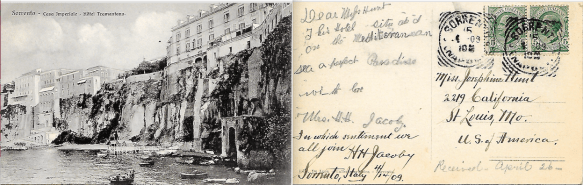 Sorrento - Casa Imperiale - Hôtel Tramontano
Dear Miss Hunt
This Hotel - situated
on the Mediterranean
sea a perfect Paradise
with love
Mrs. H.H. Jacoby
In which sentiment we
all join H H Jacoby
Sorrento, Italy 4/15/09.
SORRENTO
15
4 - 09
10M
(NAPOLI)
SORRENTO
15
4 - 09
10M
(NAPOLI)
Miss. Josephine Hunt
2219 California
St Louis, Mo.
U.S. of America.
Received April 26-